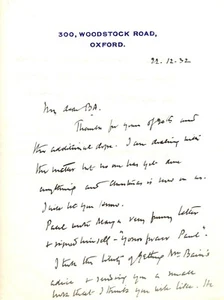 300, WOODSTOCK ROAD,
OXFORD.
22.12.32
My dear B.A.
Thanks for yours of 20th and
the additional dope. I am dealing with
the matter but no one has yet done
anything and Christmas is now on us.
I will let you know.
Paul wrote Mary a very funny letter
& signed himself - "yours forever Paul".
I took the liberty of getting Mrs Bain's
advice & sending you a small
book that I thought you would like. It